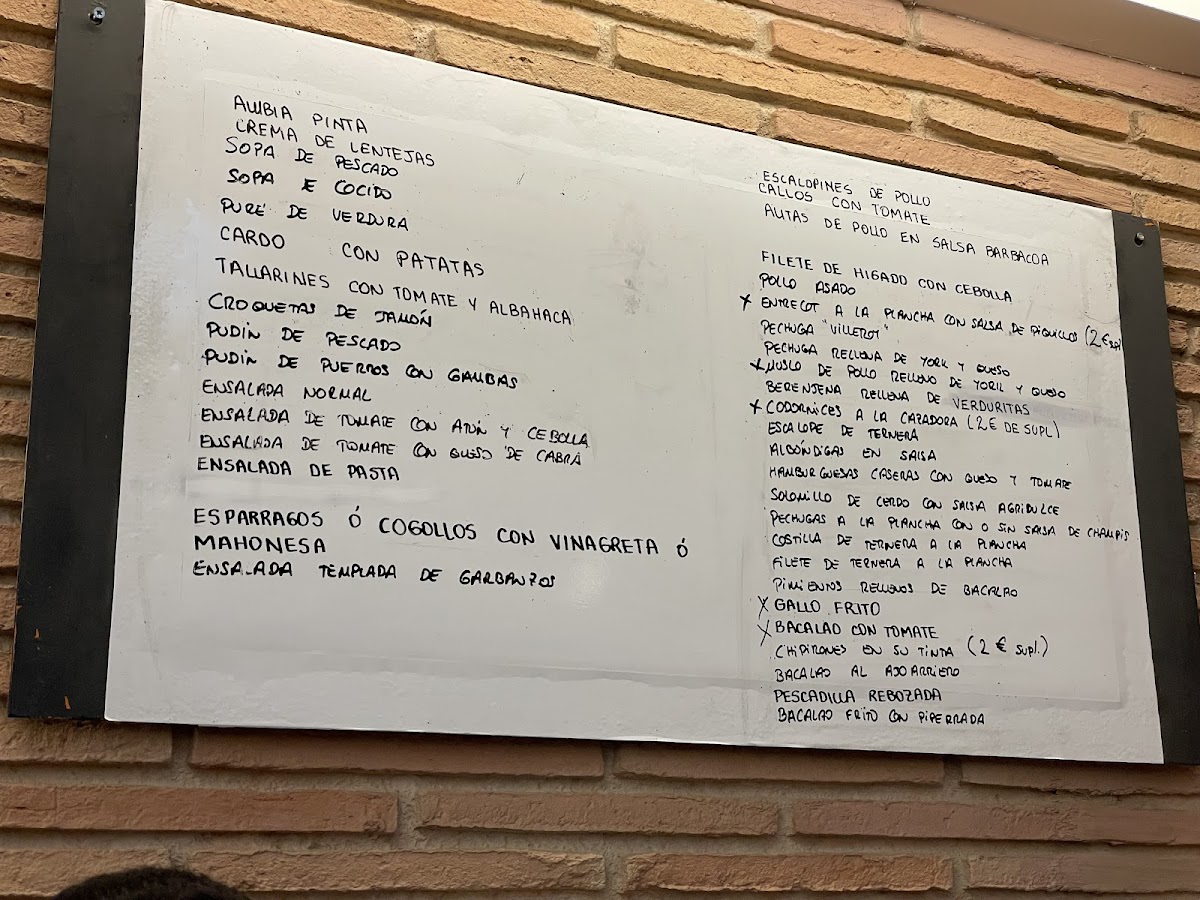 ALUBIA PINTA
CREMA DE LENTEJAS
SOPA DE PESCADO
SOPA E COCIDO
PURÉ DE VERDURA
CARDO CON PATATAS
TALLARINES CON TOMATE Y ALBAHACA
CROQUETAS DE JAMÓN
PUDIN DE PESCADO
PUDIN DE PUERROS CON GAMBAS
ENSALADA NORMAL
ENSALADA DE TOMATE CON ATÚN Y CEBOLLA
ENSALADA DE TOMATE CON QUESO DE CABRA
ENSALADA DE PASTA
ESPARRAGOS Ó COGOLLOS CON VINAGRETA Ó
MAHONESA
ENSALADA TEMPLADA DE GARBANZOS
ESCALOPINES DE POLLO
CALLOS CON TOMATE
ALITAS DE POLLO EN SALSA BARBACOA
FILETE DE HIGADO CON CEBOLLA
POLLO ASADO
X ENTRECOT A LA PLANCHA CON SALSA DE PIQUILLOS (2€ supl
PECHUGA "VILLEROT"
PECHUGA RELLENA DE YORK Y QUESO
X MUSLO DE POLLO RELLENO DE YORK Y QUESO
BERENJENA RELLENA DE VERDURITAS
X CODORNICES A LA CAZADORA (2€ DE SUPL)
ESCALOPE DE TERNERA
ALBÓNDIGAS EN SALSA
HAMBURGUESAS CASERAS CON QUESO Y TOMATE
SOLOMILLO DE CERDO CON SALSA AGRIDULCE
PECHUGAS A LA PLANCHA CON O SIN SALSA DE CHAMPIS
COSTILLA DE TERNERA A LA PLANCHA
FILETE DE TERNERA A LA PLANCHA
PIMIENTOS RELLENOS DE BACALAO
X GALLO FRITO
X BACALAO CON TOMATE
CHIPIRONES EN SU TINTA (2 € supl.)
BACALAO AL AJOARRIERO
PESCADILLA REBOZADA
BACALAO FRITO CON PIPERRADA